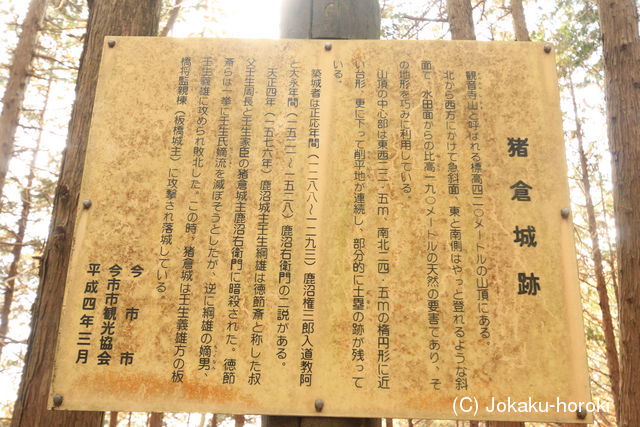 猪倉城跡
観音寺山と呼ばれる標高四二〇メートルの山頂にある。
北から西方にかけて急斜面、東と南側はやっと登れるような斜
面で、水田面からの比高一九〇メートルの天然の要害であり、そ
の地形を巧みに利用している。
山頂の中心部は東西二三・五m、南北二四・五mの楕円形に近
い台形、更に下って削平地が連続し、部分的に土塁の跡が残って
いる。
築城者は正応年間（一二八八～一二九三）鹿沼権三郎入道教阿
と大永年間（一五二一～一五二八）鹿沼右衛門の二説がある。
天正四年（一五七六年）鹿沼城主壬生綱雄は徳節斎と称した叔
父壬生周長と壬生家臣の猪倉城主鹿沼右衛門に暗殺された。徳節
斎らは一挙に壬生氏嫡流を滅ぼそうとしたが、逆に綱雄の嫡男、
壬生義雄に攻められ敗北した。この時、猪倉城は壬生義雄方の板
橋将監親棟（板橋城主）に攻撃され落城している。
今市市
今市市観光協会
平成四年三月
(C) Jokaku-horok